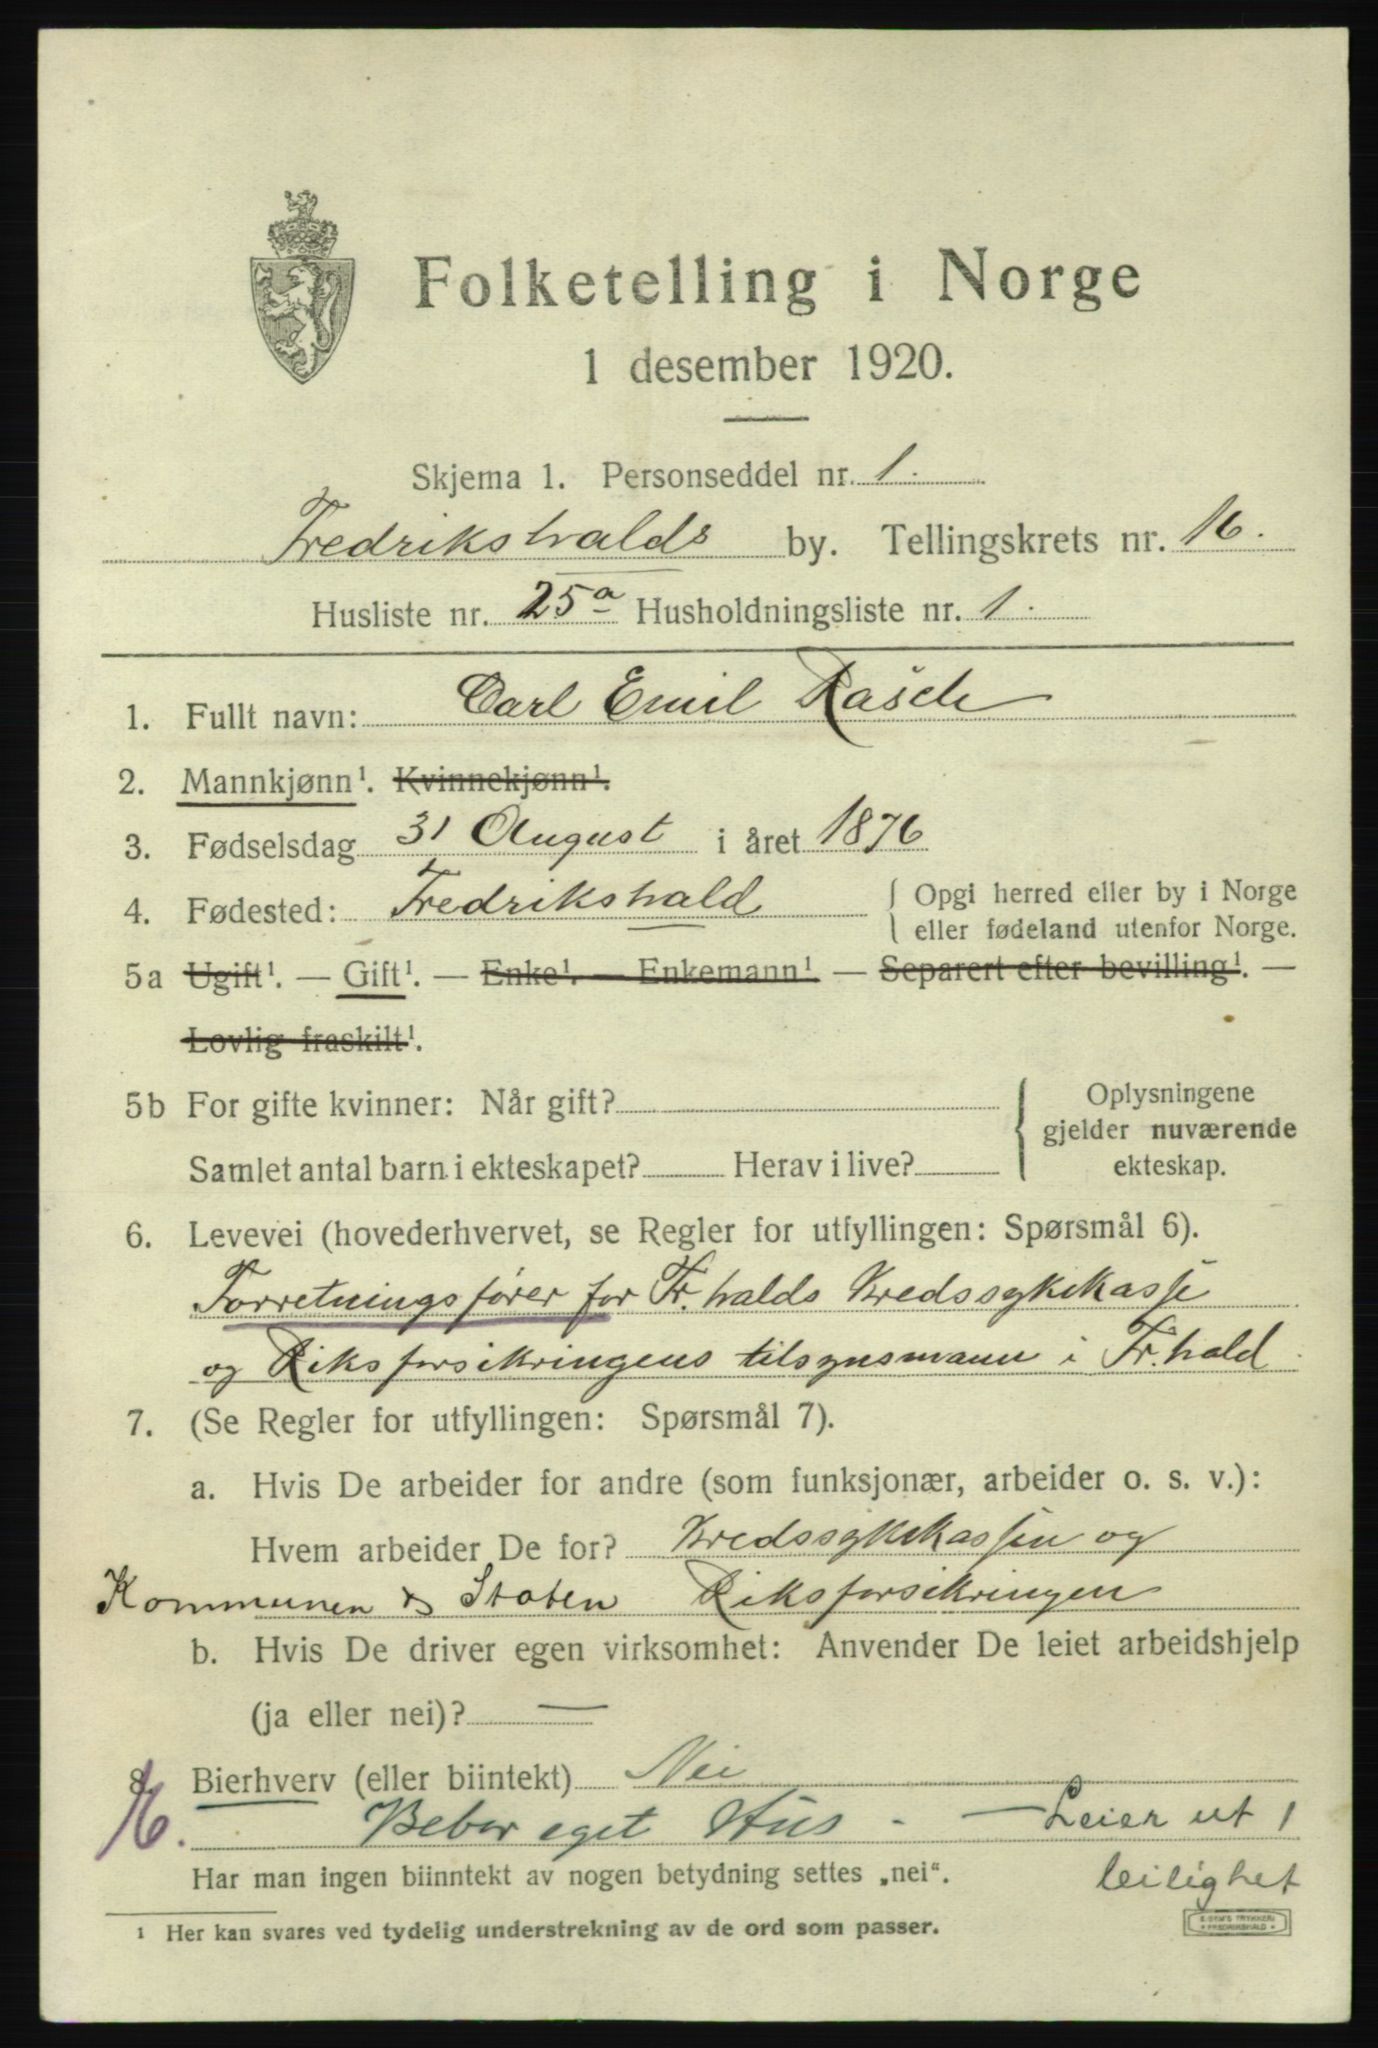 Folketelling i Norge
1 desember 1920.
Skjema 1. Personseddel nr. 1.
Fredrikshalds by. Tellingskrets nr. 16.
Husliste nr. 25a Husholdningsliste nr. 1.
1. Fullt navn: Carl Emil Rasch
2. Mannkjønn¹. Kvinnekjønn¹.
3. Fødselsdag 31 August i året 1876
4. Fødested: Fredrikshald { Opgi herred eller by i Norge
eller fødeland utenfor Norge.
5a Ugift¹. — Gift¹. — Enke¹. — Enkemann¹ — Separert efter bevilling¹. —
Lovlig fraskilt¹.
5b For gifte kvinner: Når gift? { Oplysningene
gjelder nuværende
Samlet antal barn i ekteskapet? Herav i live? ekteskap.
6. Levevei (hovederhvervet, se Regler for utfyllingen: Spørsmål 6).
Forretningsfører for Fr.halds Kredssykekasse
og Riksforsikringens tilsynsmann i Fr.hald
7. (Se Regler for utfyllingen: Spørsmål 7).
a. Hvis De arbeider for andre (som funksjonær, arbeider o. s. v.):
Hvem arbeider De for? Kredssykekassen og
Kommunen & Staten Riksforsikringen
b. Hvis De driver egen virksomhet: Anvender De leiet arbeidshjelp
(ja eller nei)? —
8. Bierhverv (eller biintekt) Nei
16. Bebor eget Hus - — Leier ut 1
Har man ingen biinntekt av nogen betydning settes „nei“. leilighet
¹ Her kan svares ved tydelig understrekning av de ord som passer.
E. SEM'S TRYKKERI
FREDRIKSHALD